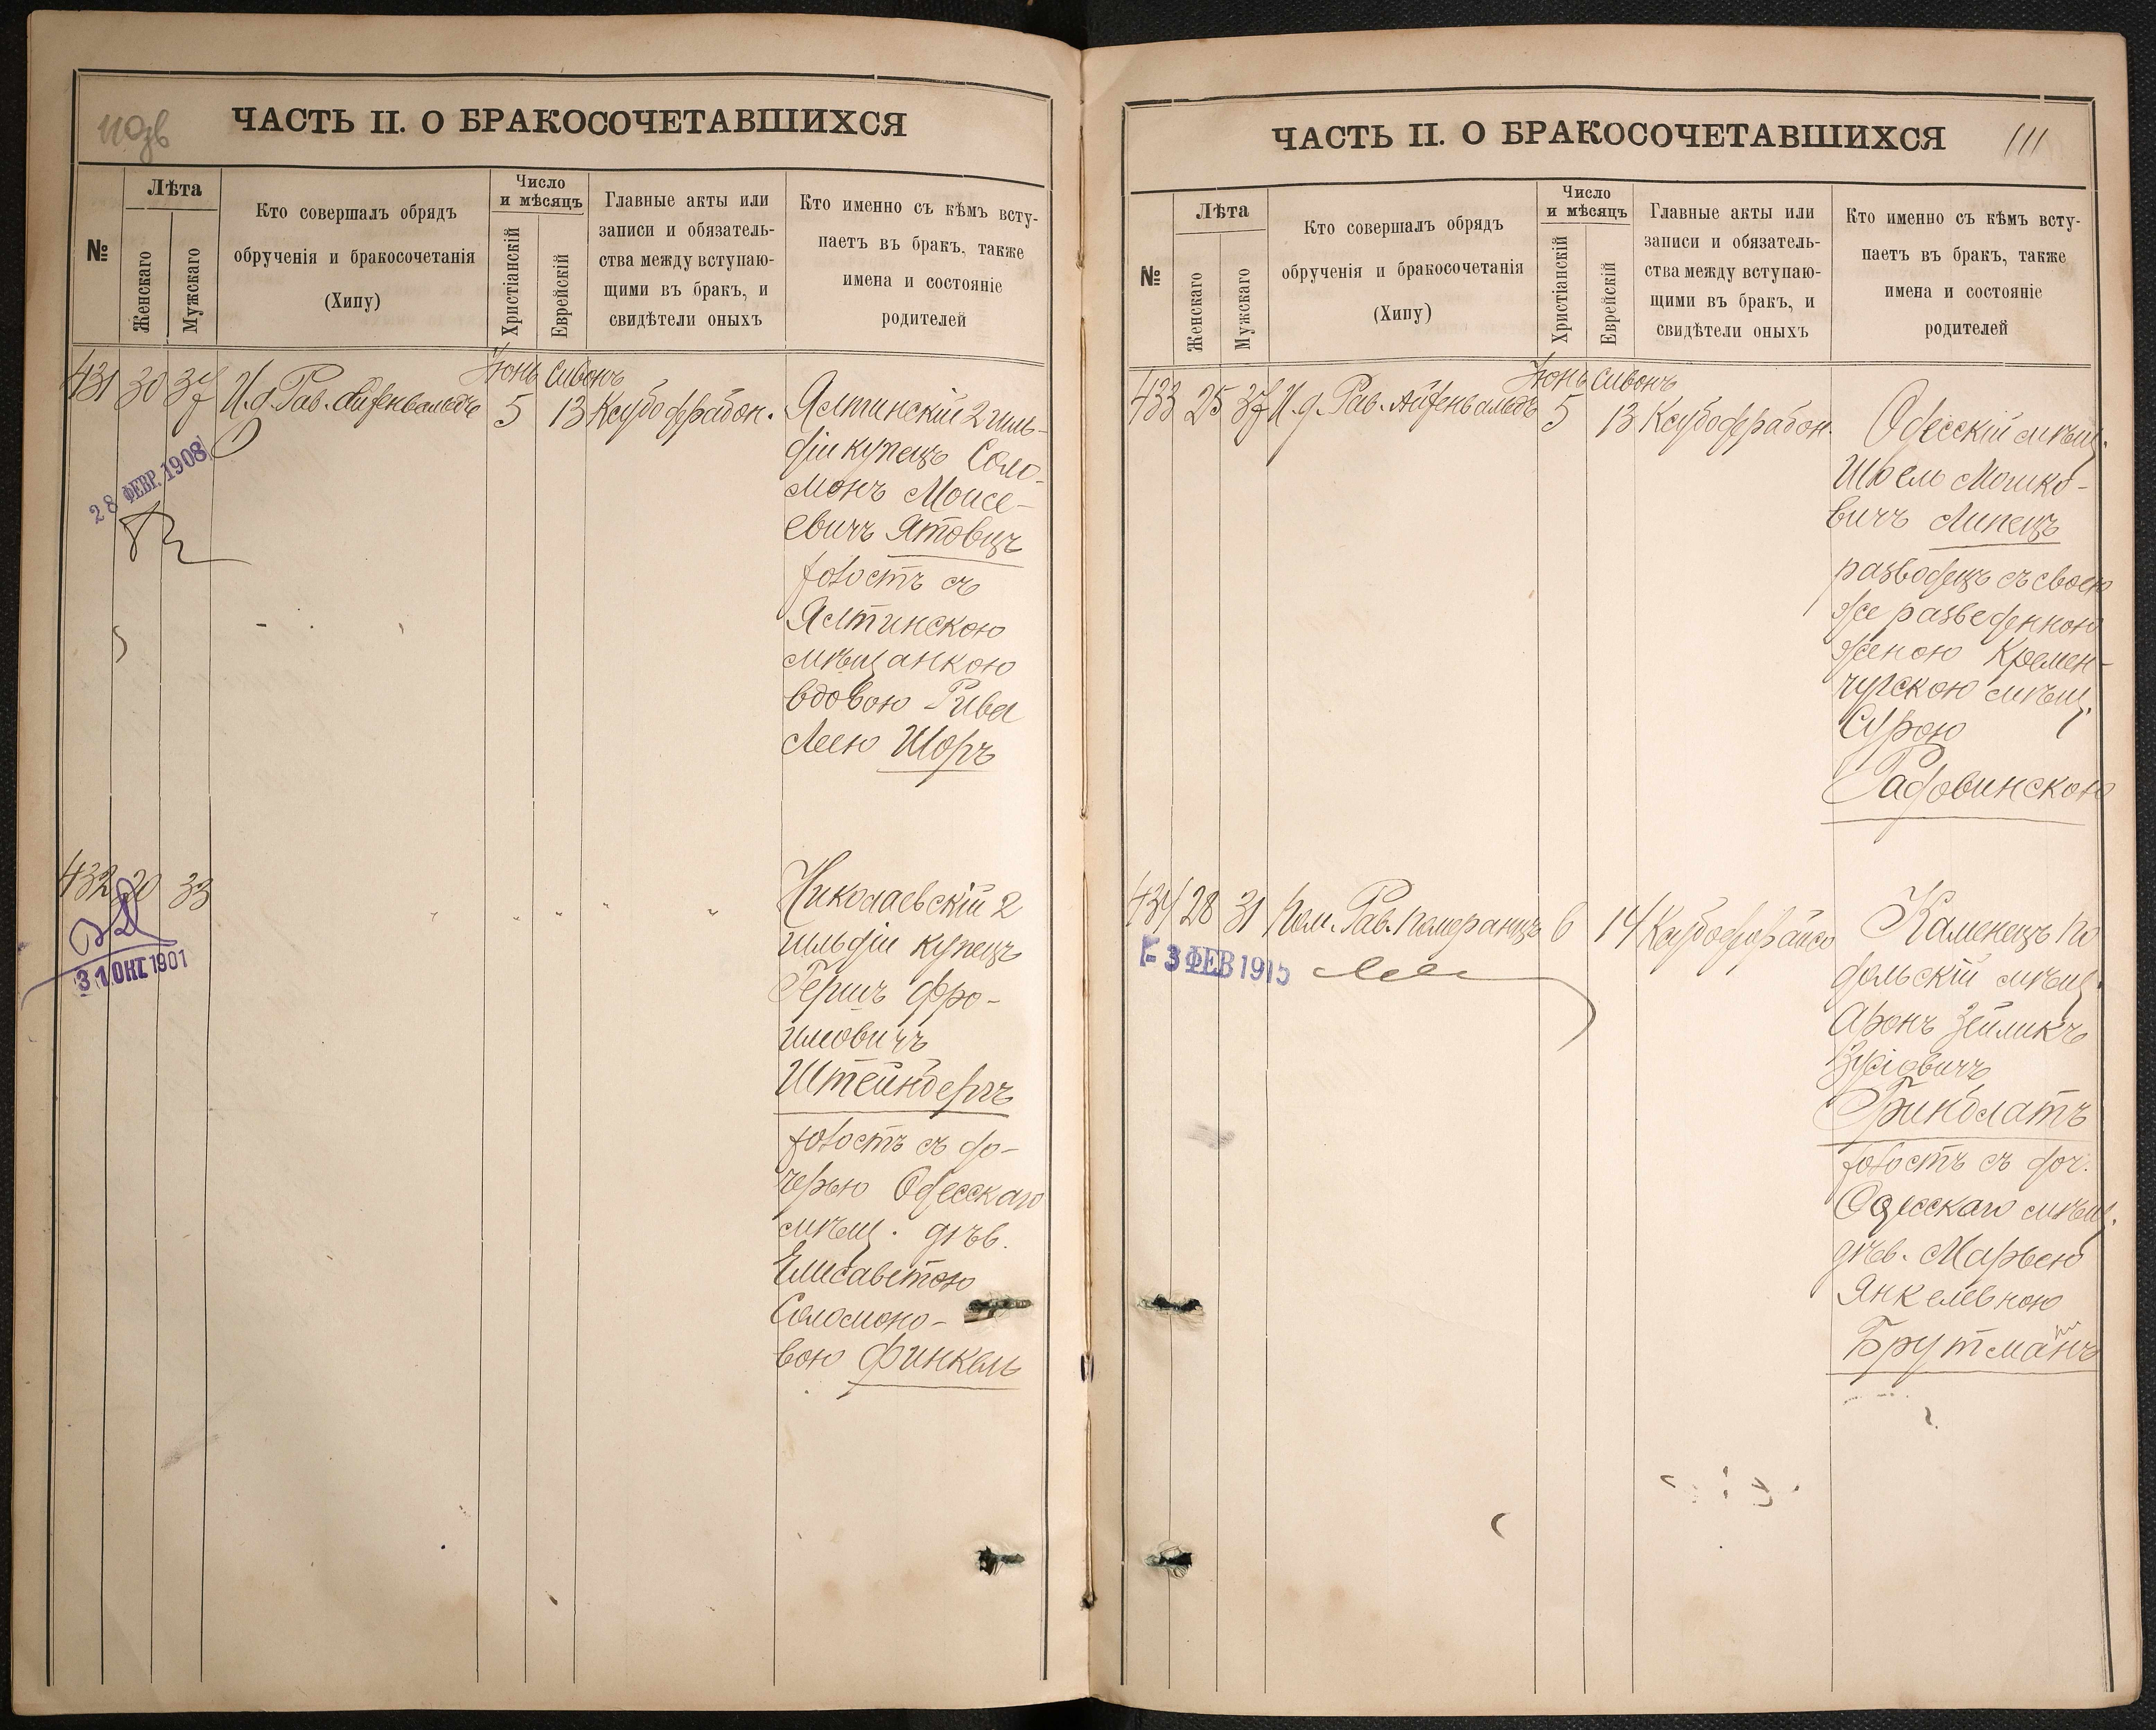 ЧАСТЬ II. О БРАКОСОЧЕТАВШИХСЯ
№
Лѣта
Женскаго
Мужскаго
Кто совершалъ обрядъ
обрученія и бракосочетанія
(Хипу)
Число
и мѣсяцъ
Христіанскій
Еврейскій
Главные акты или
записи и обязатель-
ства между вступаю-
щими въ бракъ, и
свидѣтели оныхъ
Кто именно съ кѣмъ всту-
паетъ въ бракъ, также
имена и состояніе
родителей
Іюнь Сивонъ
431 30 37 И.д. Рав. Айзенвальдъ 5 13
28 ФЕВР. 1908
Ялтинскій 2 гиль-
діи купецъ Соло-
монъ Моисе-
евичъ Ятовцъ
холостъ съ
Ялтинскою
мѣщанкою
вдовою Рива
Леею Шоръ
432 20 33 " " " " "
31 ОКТ 1901
Николаевскій 2
гильдіи купецъ
Гершъ Фро-
имовичъ
Штейнбергъ
холостъ съ до-
черью Одесскаго
мѣщ. дѣв.
Елисаветою
Соломоно-
вою Финкель
ЧАСТЬ II. О БРАКОСОЧЕТАВШИХСЯ
111
№
Лѣта
Женскаго
Мужскаго
Кто совершалъ обрядъ
обрученія и бракосочетанія
(Хипу)
Число
и мѣсяцъ
Христіанскій
Еврейскій
Главные акты или
записи и обязатель-
ства между вступаю-
щими въ бракъ, и
свидѣтели оныхъ
Кто именно съ кѣмъ всту-
паетъ въ бракъ, также
имена и состояніе
родителей
Іюнь Сивонъ
433 25 37 И.д. Рав. Айзенвальдъ 5 13
Одесскій мѣщ.
Шоель Мошко-
вичъ Липецъ
разводецъ съ своею
же разведенною
женою Кремен-
чугскою мѣщ.
Сурою
Радовинскою
434 28 31 Пом. Рав. Померанцъ 6 14
- 3 ФЕВ 1915
Каменецъ По
дольскій мѣщ.
Аронъ Зейликъ
Зусіовичъ
Гринблатъ
холостъ съ доч.
Одесскаго мѣщ.
дѣв. Марьею
Янкелевною
Брутманъ